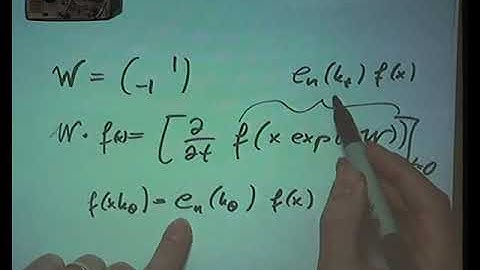 W = (₋₁ ¹) eₙ(kₜ) f(x)
W · f(x) = [∂/∂t f(x exp(tW))]ₜ₌₀
f(xk_θ) = eₙ(k_θ) f(x)